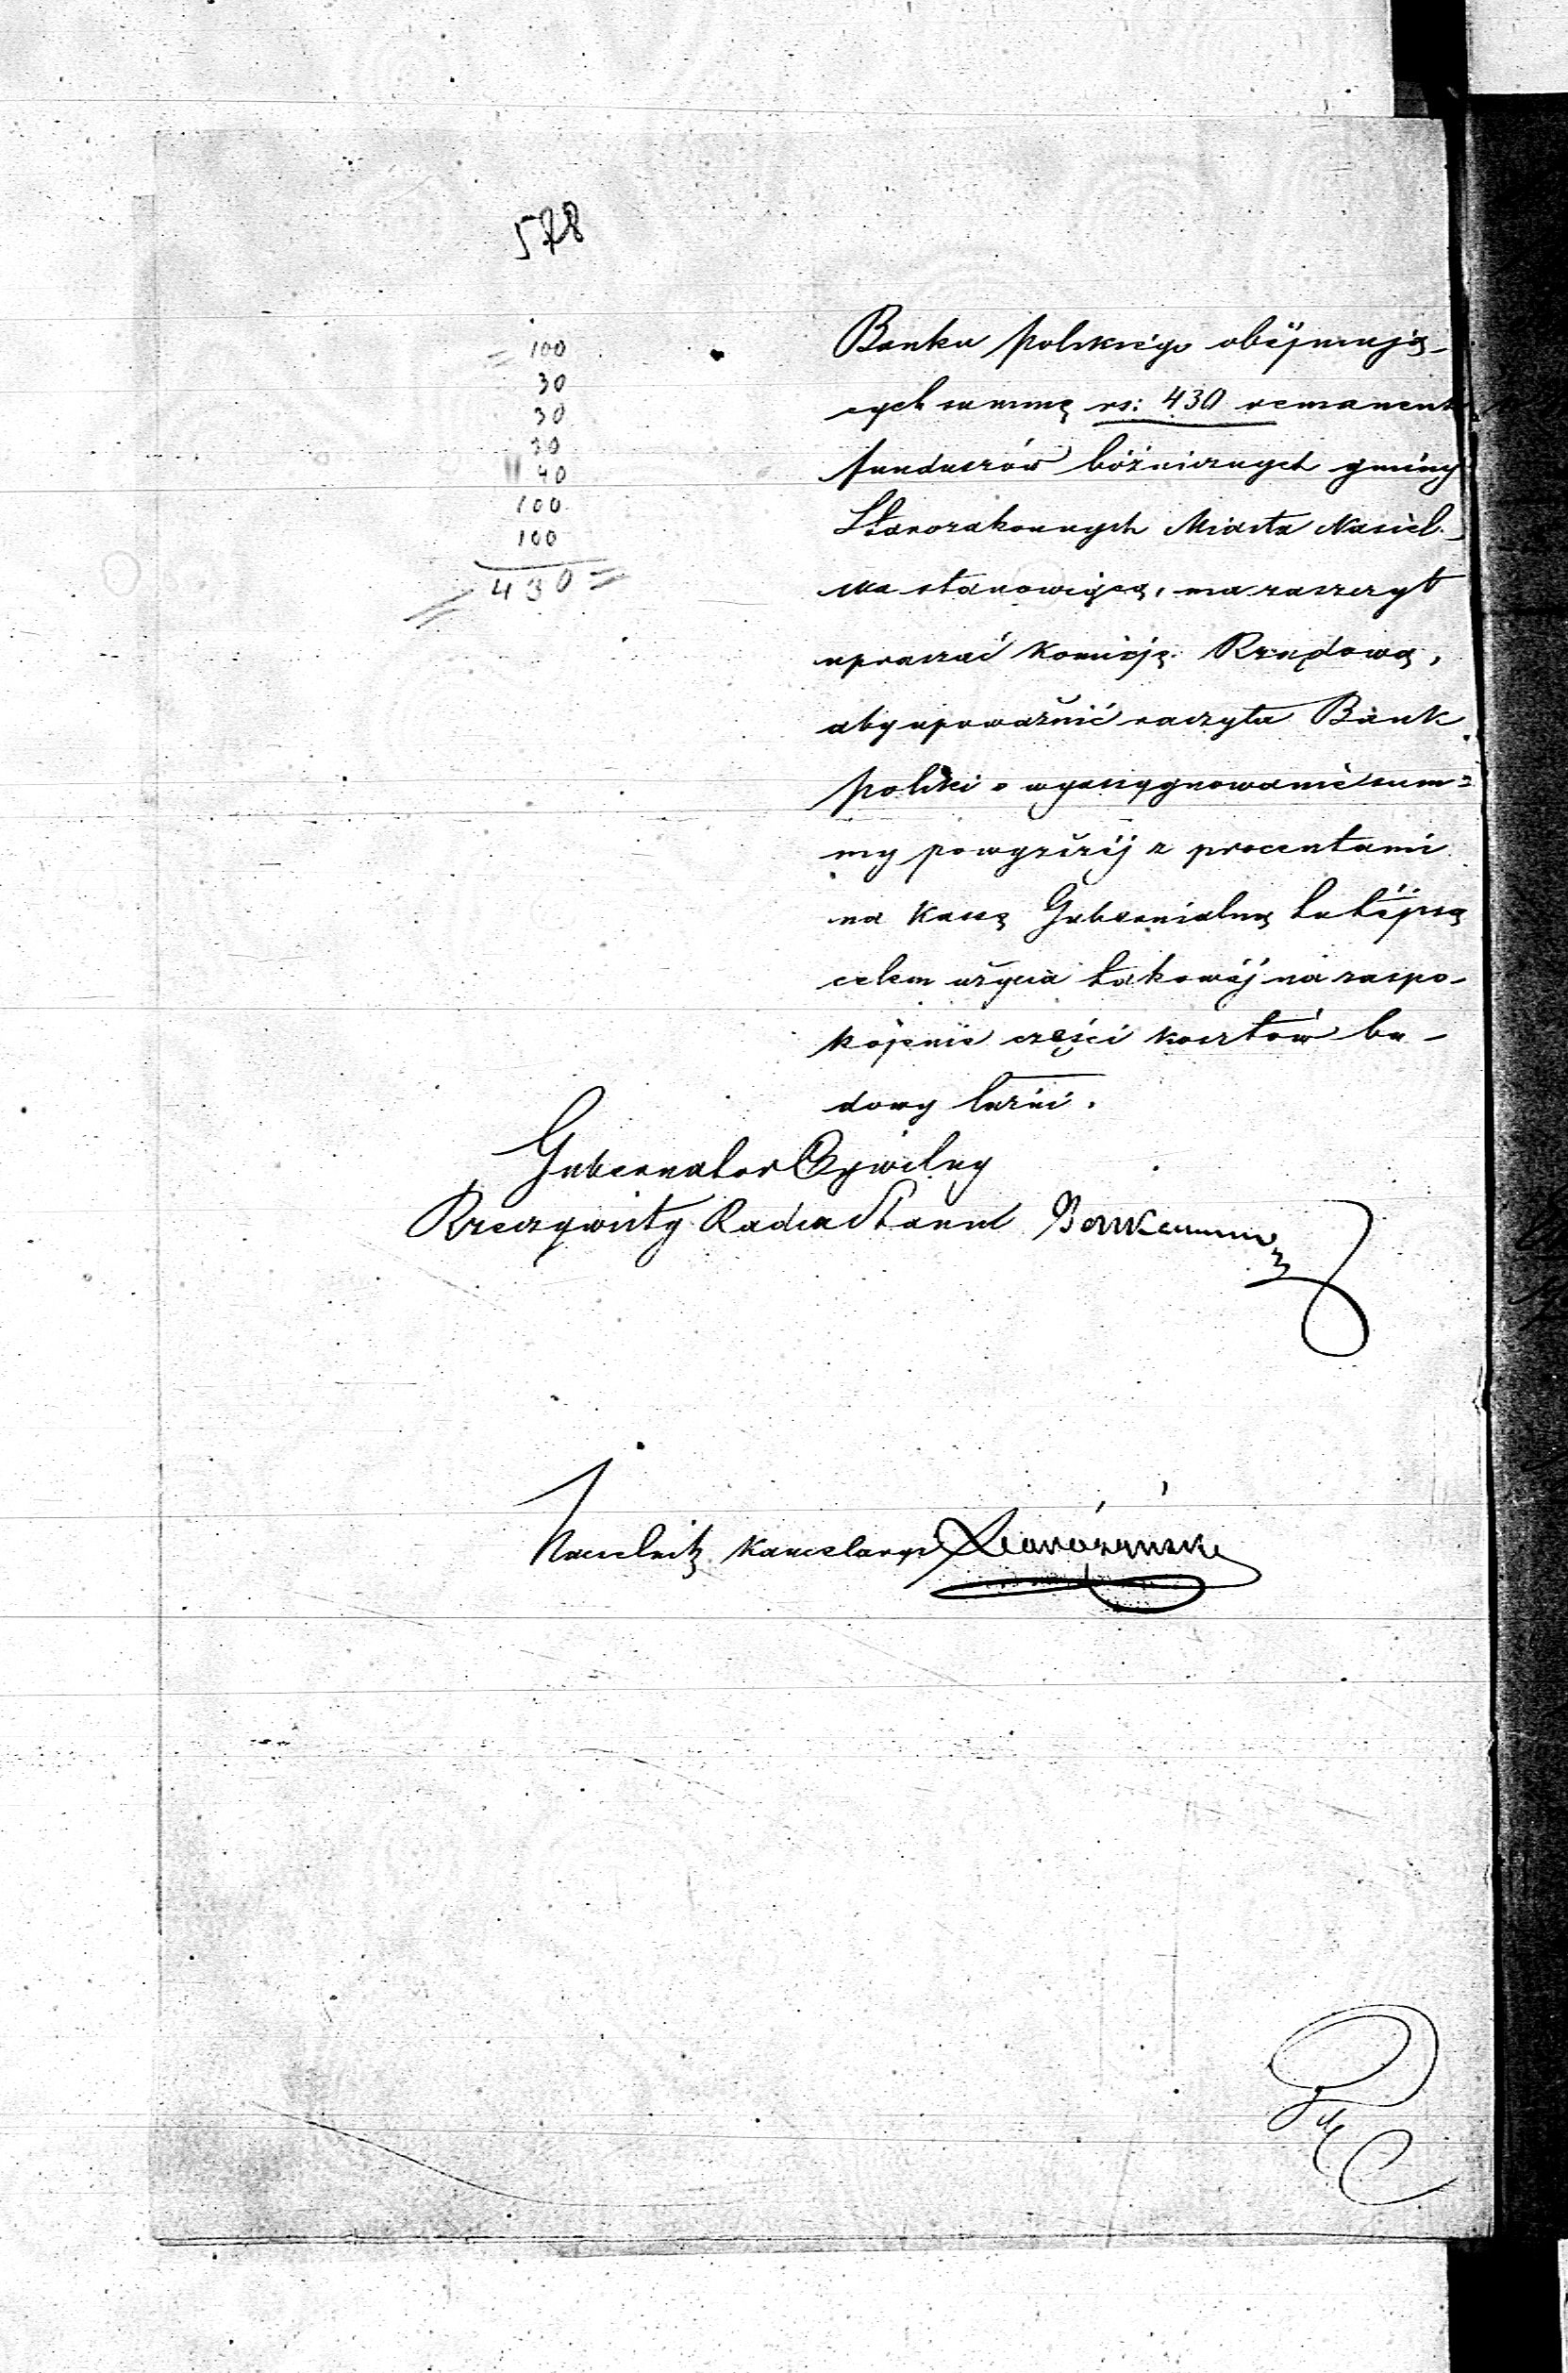 578
100
30
30
30
40
100
100
430
Banku polskiego obejmują-
cych summę rs: 430 remanent
funduszów bóżnicznych gminy
Starozakonnych Miasta Nasiel-
ska stanowiącą, ma zaszczyt
upraszać Komisję Rządową,
aby upoważnić raczyła Bank
polski o wyassygnowanie sum=
my powyższéj z procentami
na Kassę Gubernialną tutéjszą
celem użycia takowéj na zaspo-
kojenie części kosztów bu-
dowy łaźni.
Gubernator Cywilny
Rzeczywisty Radca Stanu
Naczelnik Kancelaryi